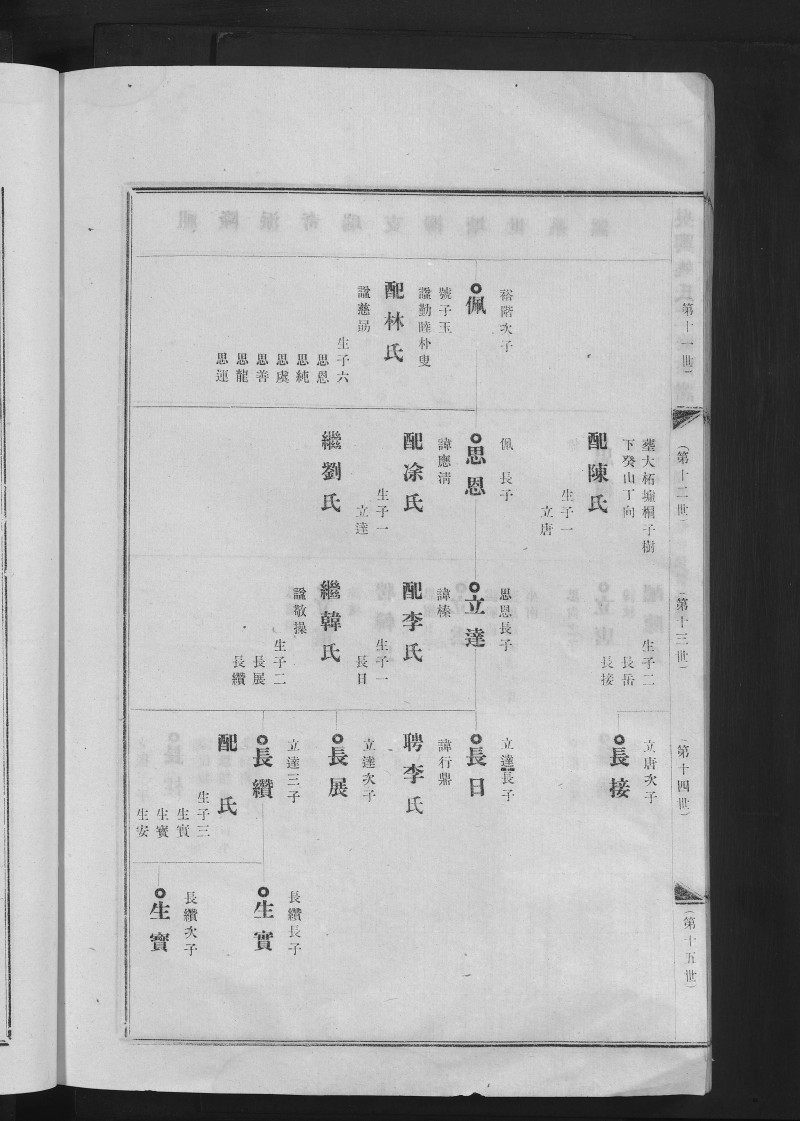 第十一世
裕階次子
佩
號子玉
諡勤睦朴叟
配林氏
諡慈勗
生子六
思恩
思純
思虞
思善
思龍
思運
(第十二世)
塟大柘墟桐子樹
下癸山丁向
配陳氏
生子一
立唐
佩 長子
思恩
諱應清
配凃氏
生子一
立達
繼劉氏
第十三世)
生子二
長岳
長接
思恩長子
立達
諱榛
配李氏
生子一
長日
繼韓氏
諡敬操
生子二
長展
長纘
第十四世)
立唐次子
長接
立達長子
長日
諱行鼎
聘李氏
立達次子
長展
立達三子
長纘
配 氏
生子三
生實
生寶
生安
(第十五世)
長纘長子
生實
長纘次子
生寶